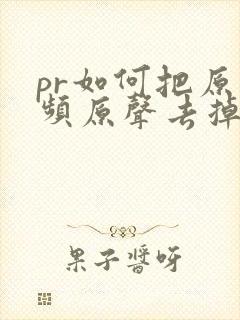 pr如何把原
頻原聲去掉
果子醬呀